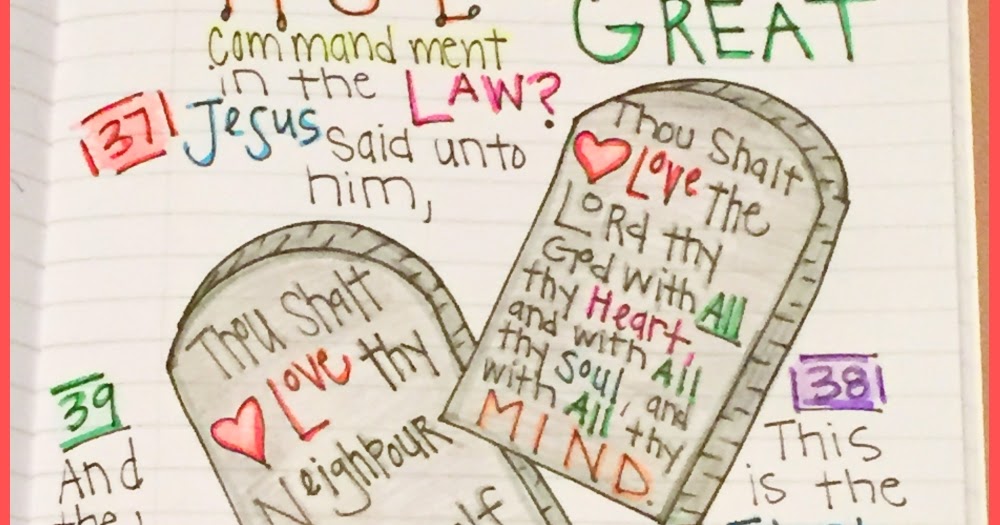 GREAT
commandment
in the LAW?
37 Jesus said unto
him,
Thou Shalt
Love the
LORd thy
God with All
thy Heart,
and with All
thy Soul, and
with All thy
MIND.
38
This
is the
39
And
the
Thou Shalt
Love thy
Neighbour